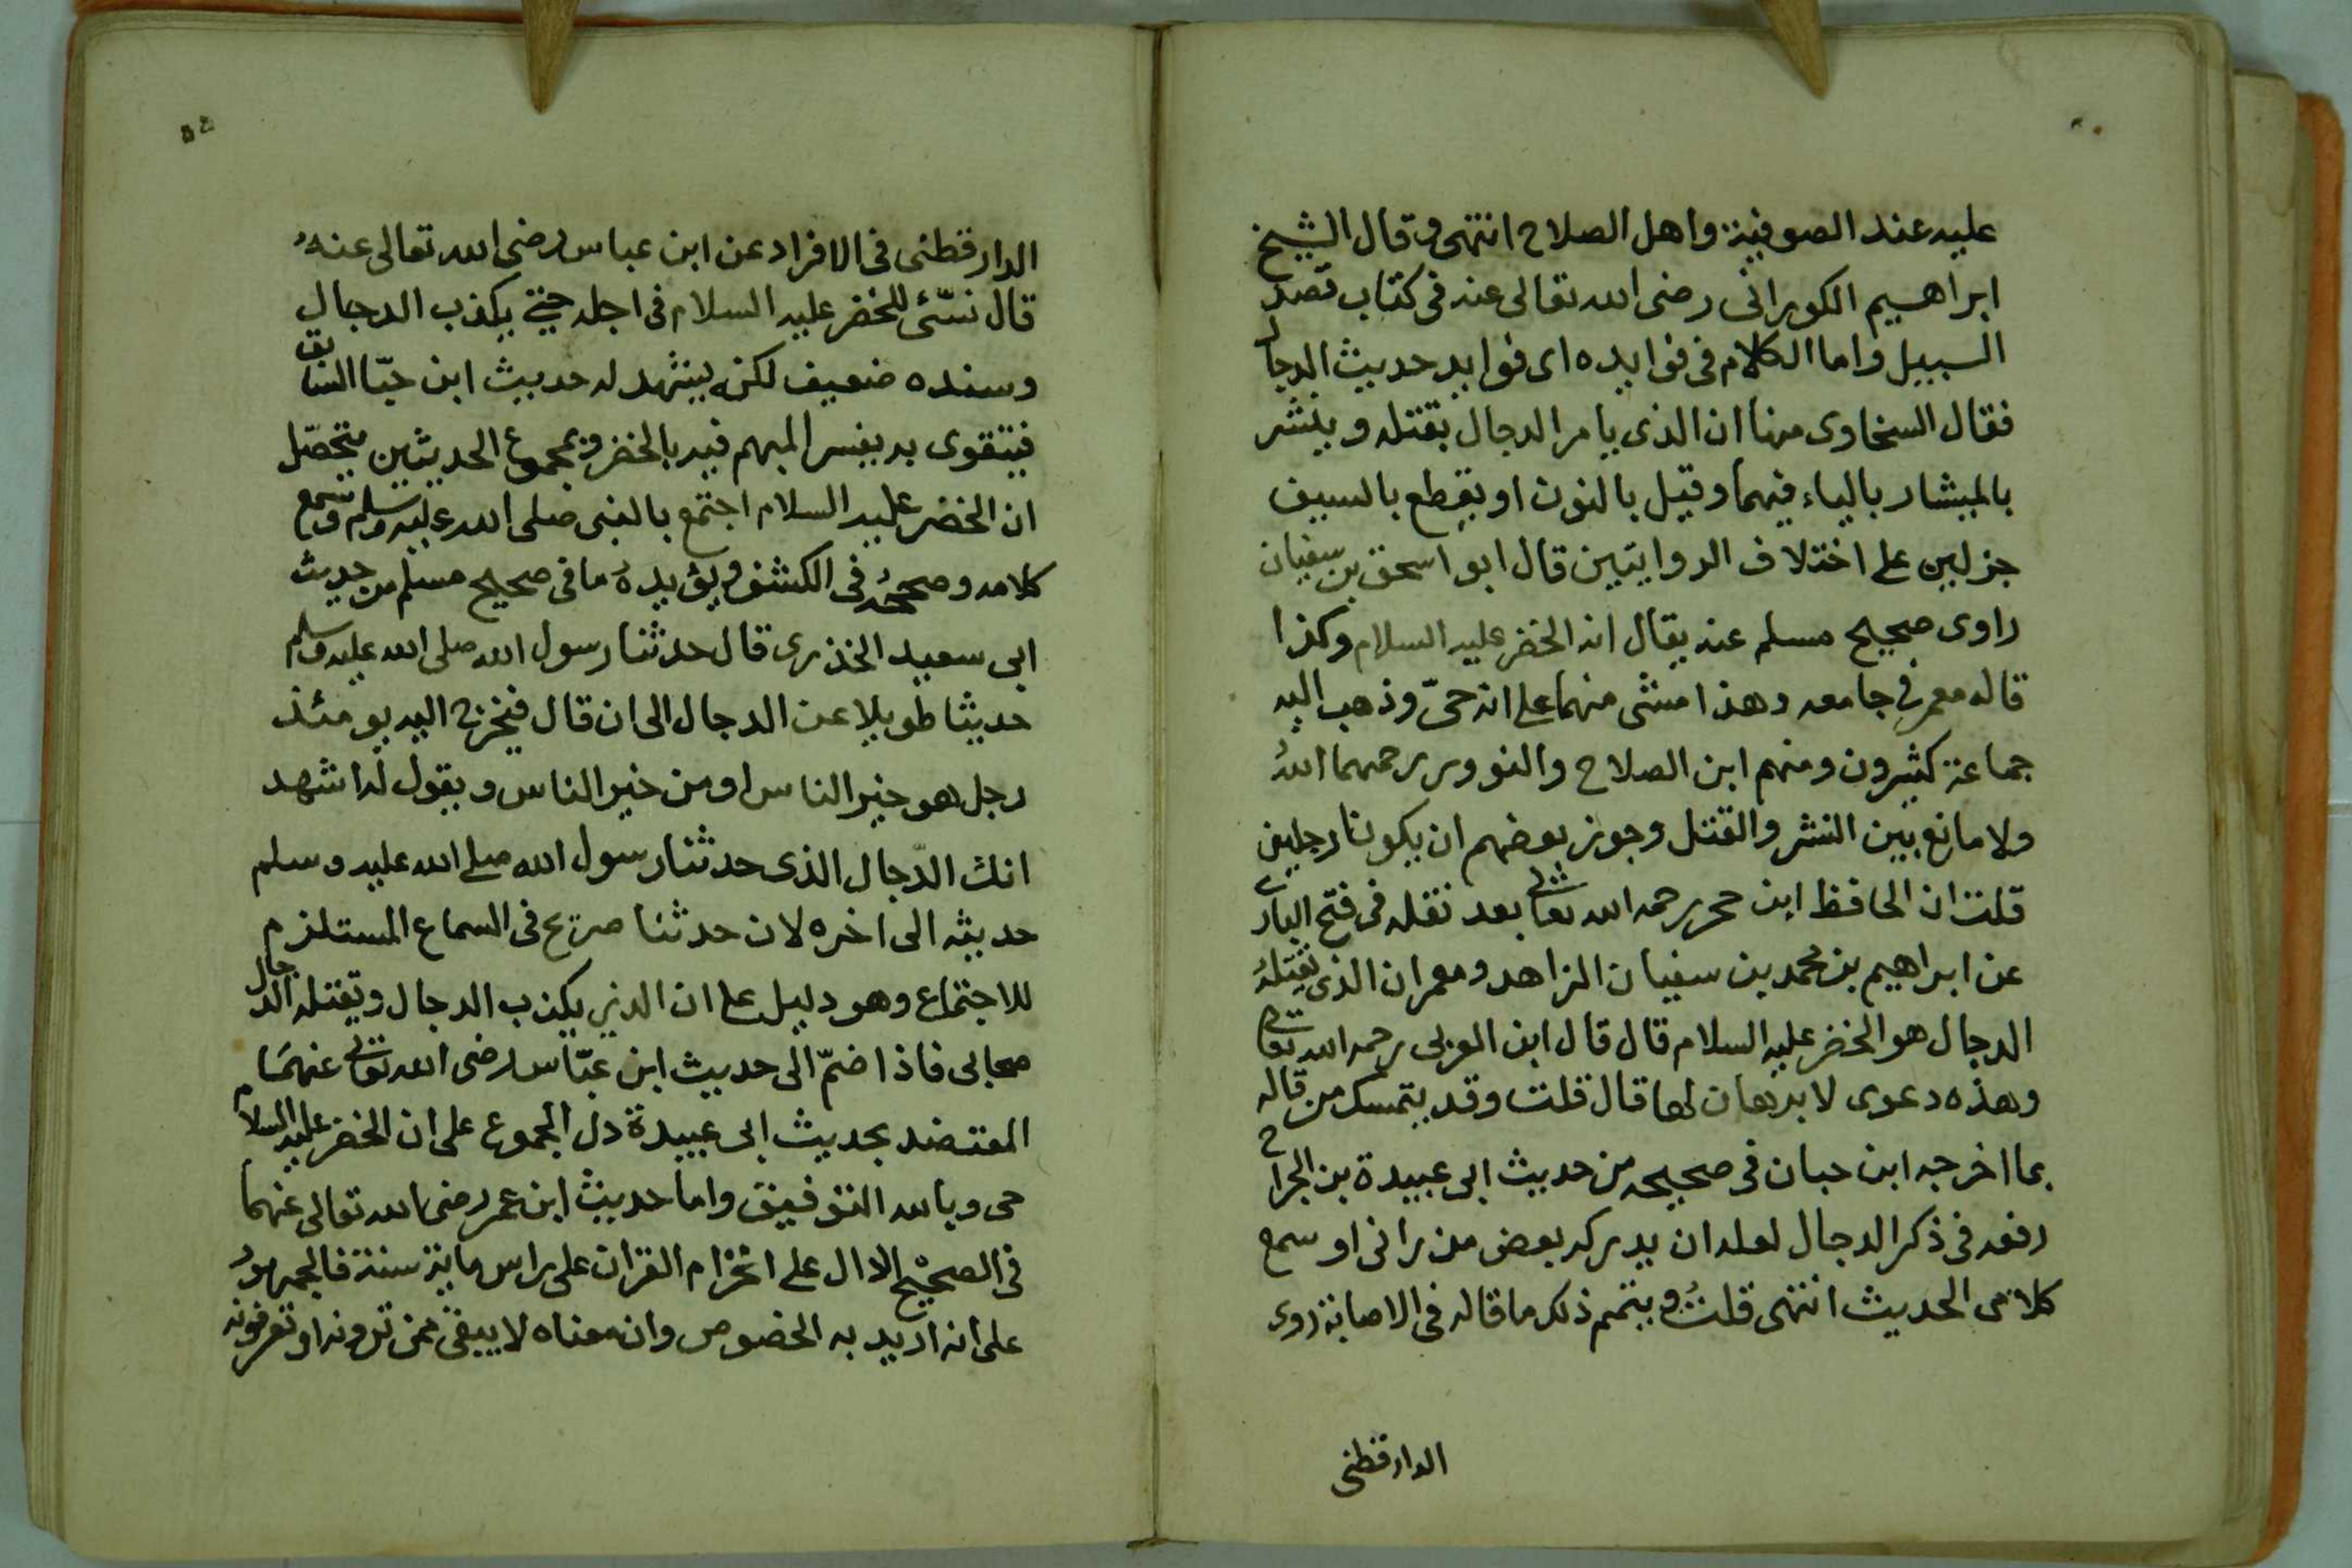 عليه عند الصوفية واهل الصلاح انتهى وقال الشيخ
ابراهيم الكوراني رضى الله تعالى عنه فى كتاب قصد
السبيل واما الكلام فى فوايده اى فوايد حديث الدجال
فقال السخاوى منها ان الذى يامر الدجال بقتله وينشر
بالميشار بالياء فيهما وقيل بالنون او يقطع بالسيف
جزلين على اختلاف الروايتين قال ابو اسحق بن سفيان
راوى صحيح مسلم عنه يقال انه الخضر عليه السلام وكذا
قاله معمر فى جامعه وهذا مشى منهما على انه حىّ وذهب اليه
جماعة كثيرون ومنهم ابن الصلاح والنووى رحمهما اللهُ
ولا مانع بين النشر والقتل وجوز بعضهم ان يكونا رجلين
قلت ان الحافظ ابن حجر رحمه الله تعالى بعد نقله فى فتح البارى
عن ابراهيم بن محمد بن سفيان الزاهد ومعمر ان الذى يقتلهُ
الدجال هو الخضر عليه السلام قال قال ابن العربى رحمه الله تعالى
وهذه دعوى لا برهان لها قال قلت وقد يتمسك من قاله
بما اخرجه ابن حبان فى صحيحه من حديث ابى عبيدة بن الجراح
رفعه فى ذكر الدجال لعله ان يدركه بعض من رانى او سمع
كلامى الحديث انتهى قلتُ ويتمم ذلك ما قاله فى الاصابة روى
الدارقطنى
الدارقطنى فى الافراد عن ابن عباس رضى الله تعالى عنهُ
قال نسّئ للخضر عليه السلام فى اجله حتى يكذب الدجال
وسنده ضعيف لكن يشهد له حديث ابن حبّا السابق
فيتقوى به يفسر المبهم فيه بالخضر وبمجموع الحديثين يتحصّل
ان الخضر عليه السلام اجتمع بالنبى صلى الله عليه وسلم وسمع
كلامه وصححهُ فى الكشف ويؤيدهُ ما فى صحيح مسلم من حديث
ابى سعيد الخذرى قال حدثنا رسول الله صلى الله عليه وسلم
حديثا طويلا عن الدجال الى ان قال فيخرج اليه يومئذ
رجل هو خير الناس او من خير الناس ويقول له اشهد
انك الدّجال الذى حدثنا رسول الله صلى الله عليه وسلم
حديثه الى اخره لان حدثنا صريح فى السماع المستلزم
للاجتماع وهو دليل على ان الذى يكذب الدجال ويقتله الدجال
صحابى فاذا ضمّ الى حديث ابن عبّاس رضى الله تعالى عنهمَا
المعتضد بحديث ابى عبيدة دل المجموع على ان الخضر عليه السلام
حى وبالله التوفيق واما حديث ابن عمر رضى الله تعالى عنهما
فى الصحيح الدال على انخزام القران على راس ماية سنة فالجمهورُ
على انه اريد به الخصوص وان معناه لا يبقى ممن ترونه او تعرفونه